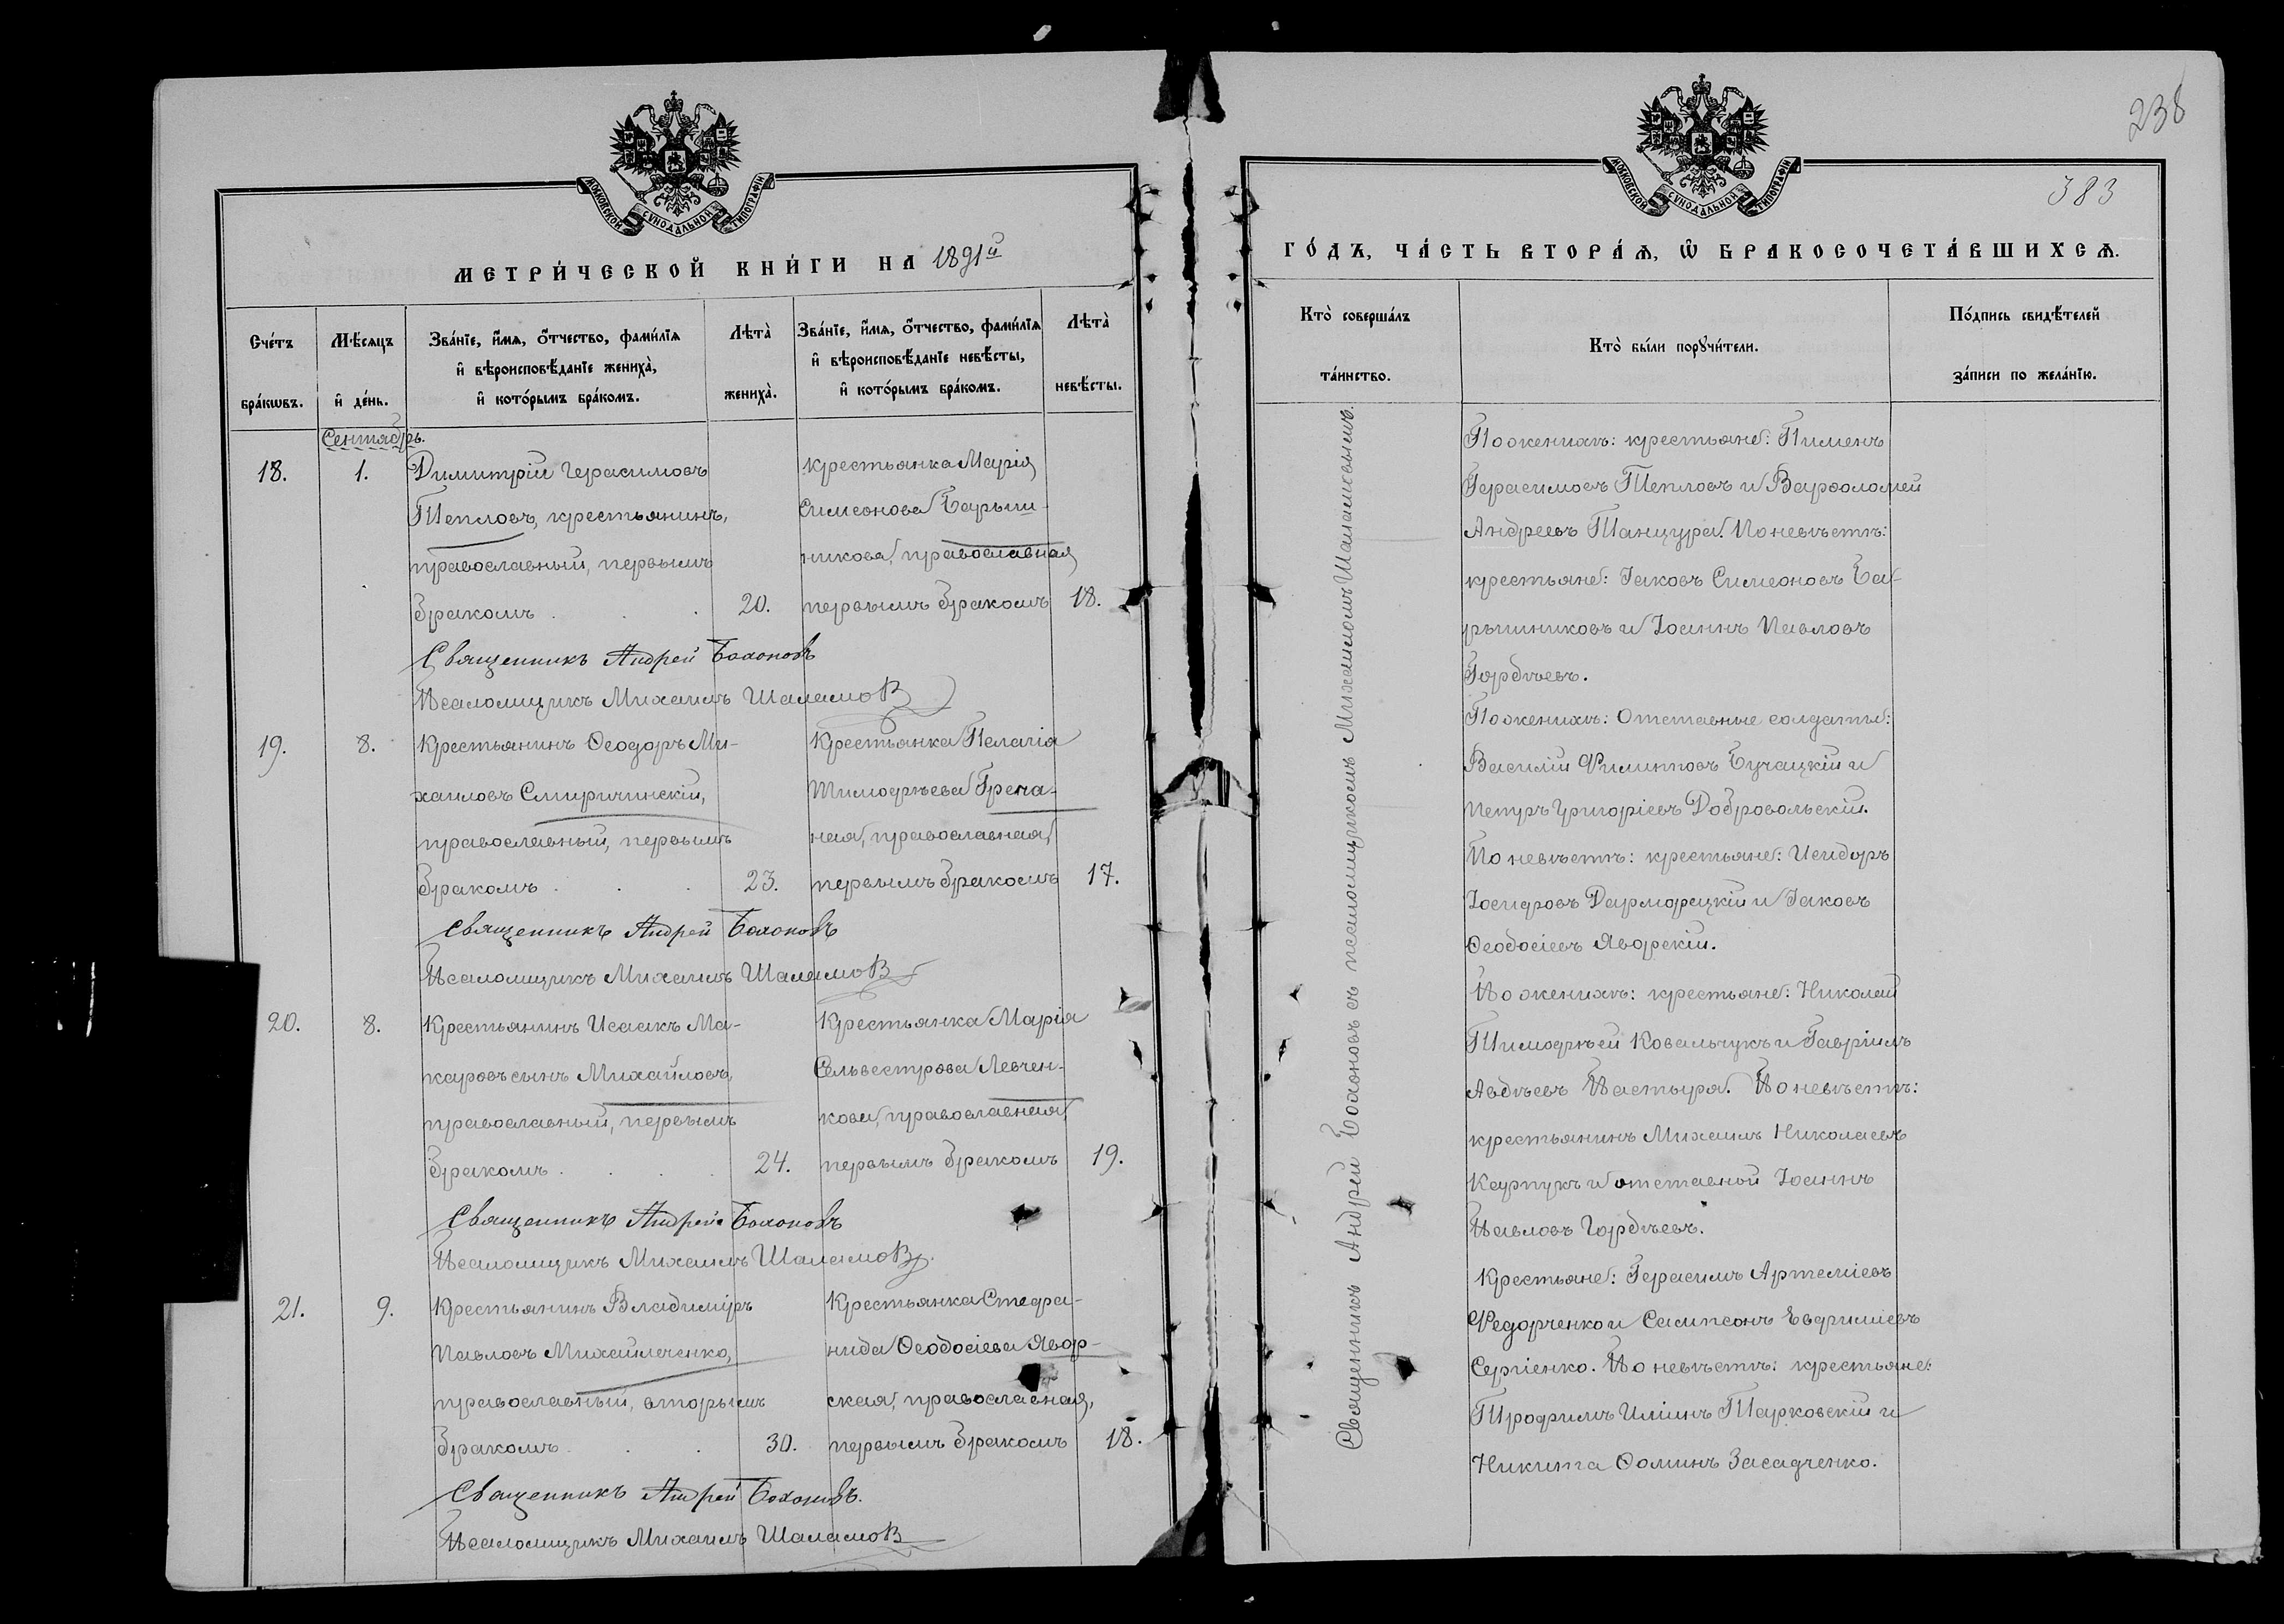 МОСКОВСКОЙ СѴНОДАЛЬНОЙ ТИПОГРАФІИ
МЕТРИ́ЧЕСКОЙ КНИ́ГИ НА 1891й
Сче́тъ бра́кѡвъ.
Мѣ́сѧцъ и҆ де́нь.
Зва́нїе, и҆́мѧ, ѻ҆́тчество, фами́лїѧ
и҆ вѣроисповѣ́данїе жениха̀,
и҆ кото́рымъ бра́комъ.
Лѣта̀ жениха̀.
Зва́нїе, и҆́мѧ, ѻ҆́тчество, фами́лїѧ
и҆ вѣроисповѣ́данїе невѣ́сты,
и҆ кото́рымъ бра́комъ.
Лѣта̀ невѣ́сты.
Сентябрь.
18.
1.
Димитрій Герасимовъ
Тепловъ, крестьянинъ,
православный, первымъ
бракомъ . . . 20.
крестьянка Марія
Симеонова Барыш-
никова, православная
первымъ бракомъ 18.
Священникъ Андрей Бохоновъ
Псаломщикъ Михаилъ Шаламов
19.
8.
Крестьянинъ Ѳеодоръ Ми-
хаиловъ Смиричинскій,
православный, первымъ
бракомъ . . . 23.
Крестьянка Пелагія
Тимофѣева Греча-
ная, православная,
первымъ бракомъ 17.
Священникъ Андрей Бохоновъ
Псаломщикъ Михаилъ Шаламов
20.
8.
Крестьянинъ Исаакъ Ма-
каровъ сынъ Михайловъ,
православный, первымъ
бракомъ . . . 24.
Крестьянка Марія
Сельвестрова Левчен-
кова, православная,
первымъ бракомъ 19.
Священникъ Андрей Бохоновъ
Псаломщикъ Михаилъ Шаламов.
21.
9.
Крестьянинъ Владиміръ
Павловъ Михайличенко,
православный, вторымъ
бракомъ . . . 30.
Крестьянка Стефа-
нида Ѳеодосіева Явор-
ская, православная,
первымъ бракомъ 18.
Священникъ Андрей Бохоновъ.
Псаломщикъ Михаилъ Шаламов
238
МОСКОВСКОЙ СѴНОДАЛЬНОЙ ТИПОГРАФІИ
383
ГО́ДЪ, ЧА́СТЬ ВТОРА́Ѧ, Ѽ БРАКОСОЧЕТА́ВШИХСѦ.
Кто̀ соверша́лъ та́инство.
Кто̀ бы́ли порꙋчи́тели.
По́дпись свидѣ́телей
за́писи по жела́нїю.
Священникъ Андрей Бохоновъ съ псаломщикомъ Михаиломъ Шаламовымъ.
По женихѣ: крестьяне: Пименъ
Герасимовъ Тепловъ и Варѳоломей
Андреевъ Танцура. По невѣстѣ:
крестьяне: Іаковъ Симеоновъ Ба-
рышниковъ и Іоаннъ Павловъ
Гордѣевъ.
По женихѣ: Отставные солдаты:
Василій Филипповъ Бучацкій и
Петръ Григоріевъ Добровольскій.
По невѣстѣ: крестьяне: Исидоръ
Іосифовъ Дарморецкій и Іаковъ
Ѳеодосіевъ Яворскій.
По женихѣ: крестьяне: Николай
Тимофѣей Ковальчукъ и Гавріилъ
Авдѣевъ Пастыра. По невѣстѣ:
крестьянинъ Михаилъ Николаевъ
Карпукъ и отставной Іоаннъ
Павловъ Гордѣевъ.
Крестьяне: Герасимъ Артеміевъ
Федорченко и Сампсонъ Евфиміевъ
Сергіенко. По невѣстѣ: крестьяне:
Трофимъ Иліинъ Тарковскій и
Никита Ѳоминъ Засадченко.